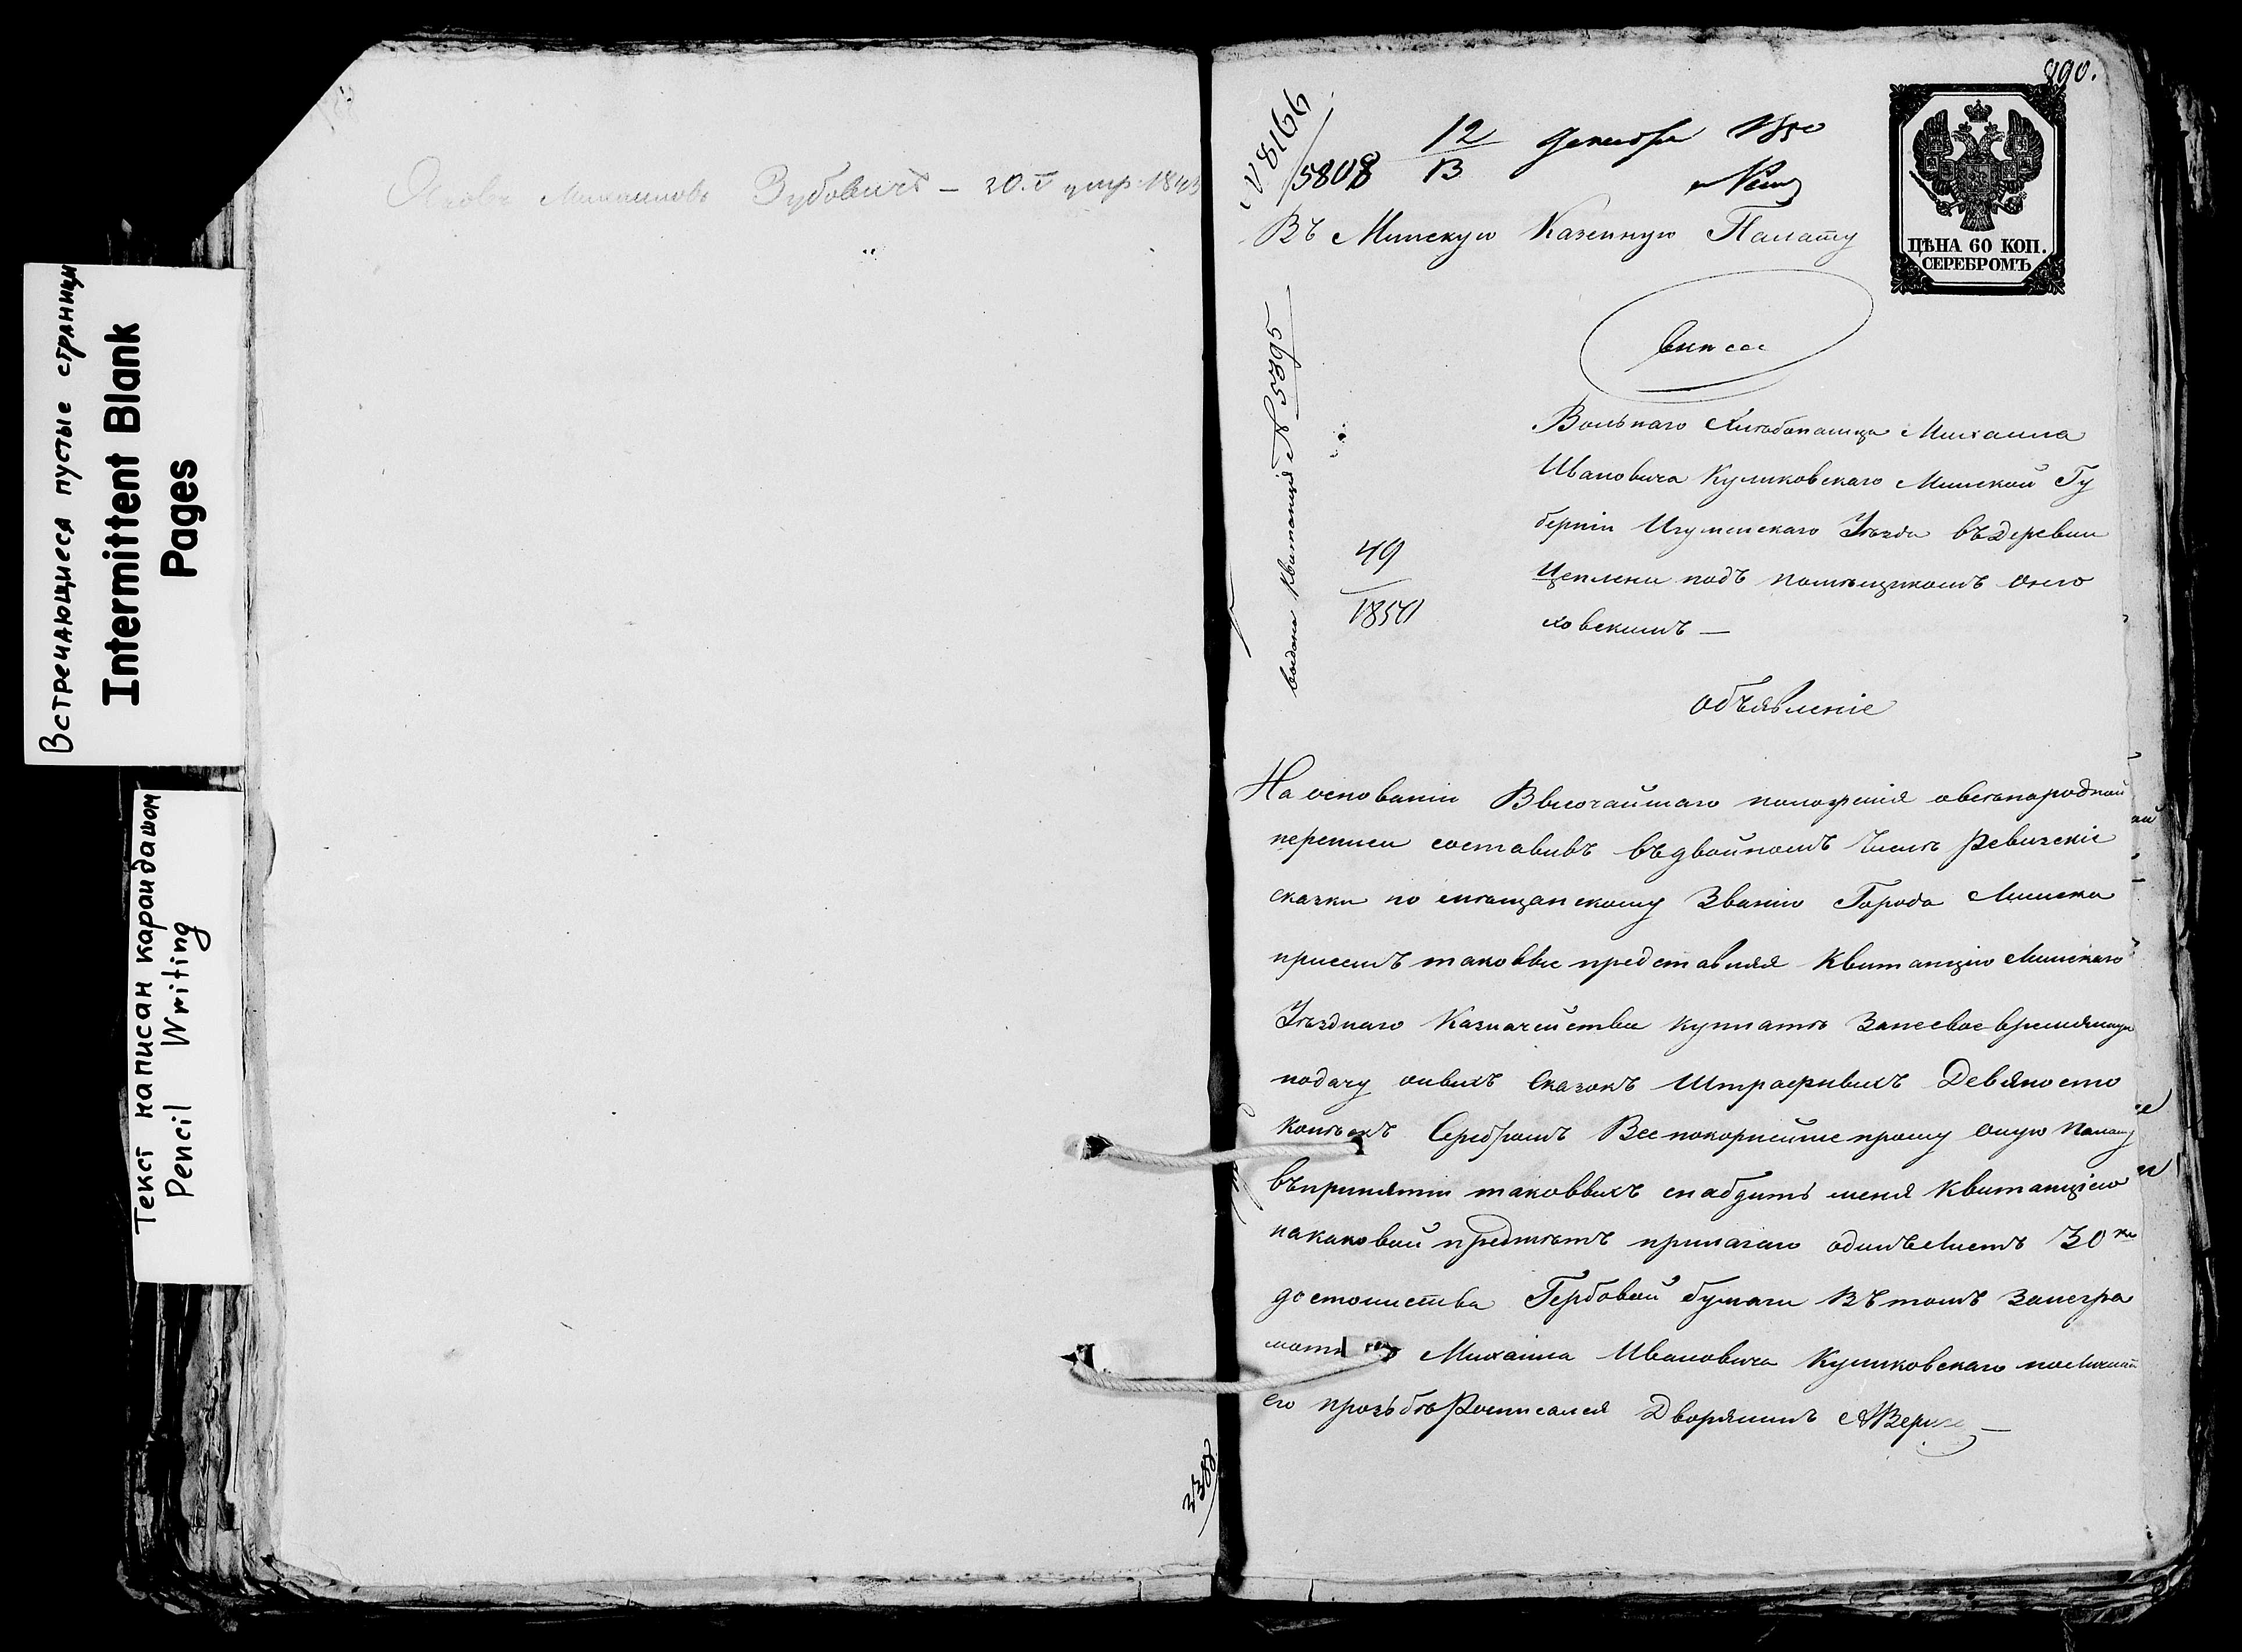 Встречающиеся пустые страницы
Intermittent Blank
Pages
Текст написан карандашом
Pencil Writing
Яковъ Зубовичъ — 20.
2388
890.
N 8166
5808
12 декабря 1850
13
Въ Минскую Казенную Палату
ЦѢНА 60 КОП.
СЕРЕБРОМЪ
выдана Квитанція N 5395
49
1850
Вольнаго Хлѣбопашца Михаила
Ивановича Куликовскаго Минской Гу
берніи Игуменскаго Уѣзда въ деревни
Цеплени подъ помѣщикомъ
ховскимъ —
объявленіе
На основаніи Высочайшаго положенія о всенародной
переписи составивъ въ двойномъ числѣ Ревизскіе
сказки по мѣщанскому Званію Города Минска
присемъ таковые представляя квитанцію Минскаго
Уѣзднаго Казначейства за несвоевременную
подачу оныхъ Сказокъ Штрафныхъ Девяносто
копѣекъ Серебромъ Всепокорнейше прошу оную Палату
въ принятіи таковыхъ снабдить меня Квитанціею
на каковой предмѣтъ прилагаю одинъ Листъ 30 ко
достоинства Гербовой бумаги Въ томъ за негра
Михаила Ивановича Куликовскаго по личной
его прозьбѣ Росписался Дворянинъ